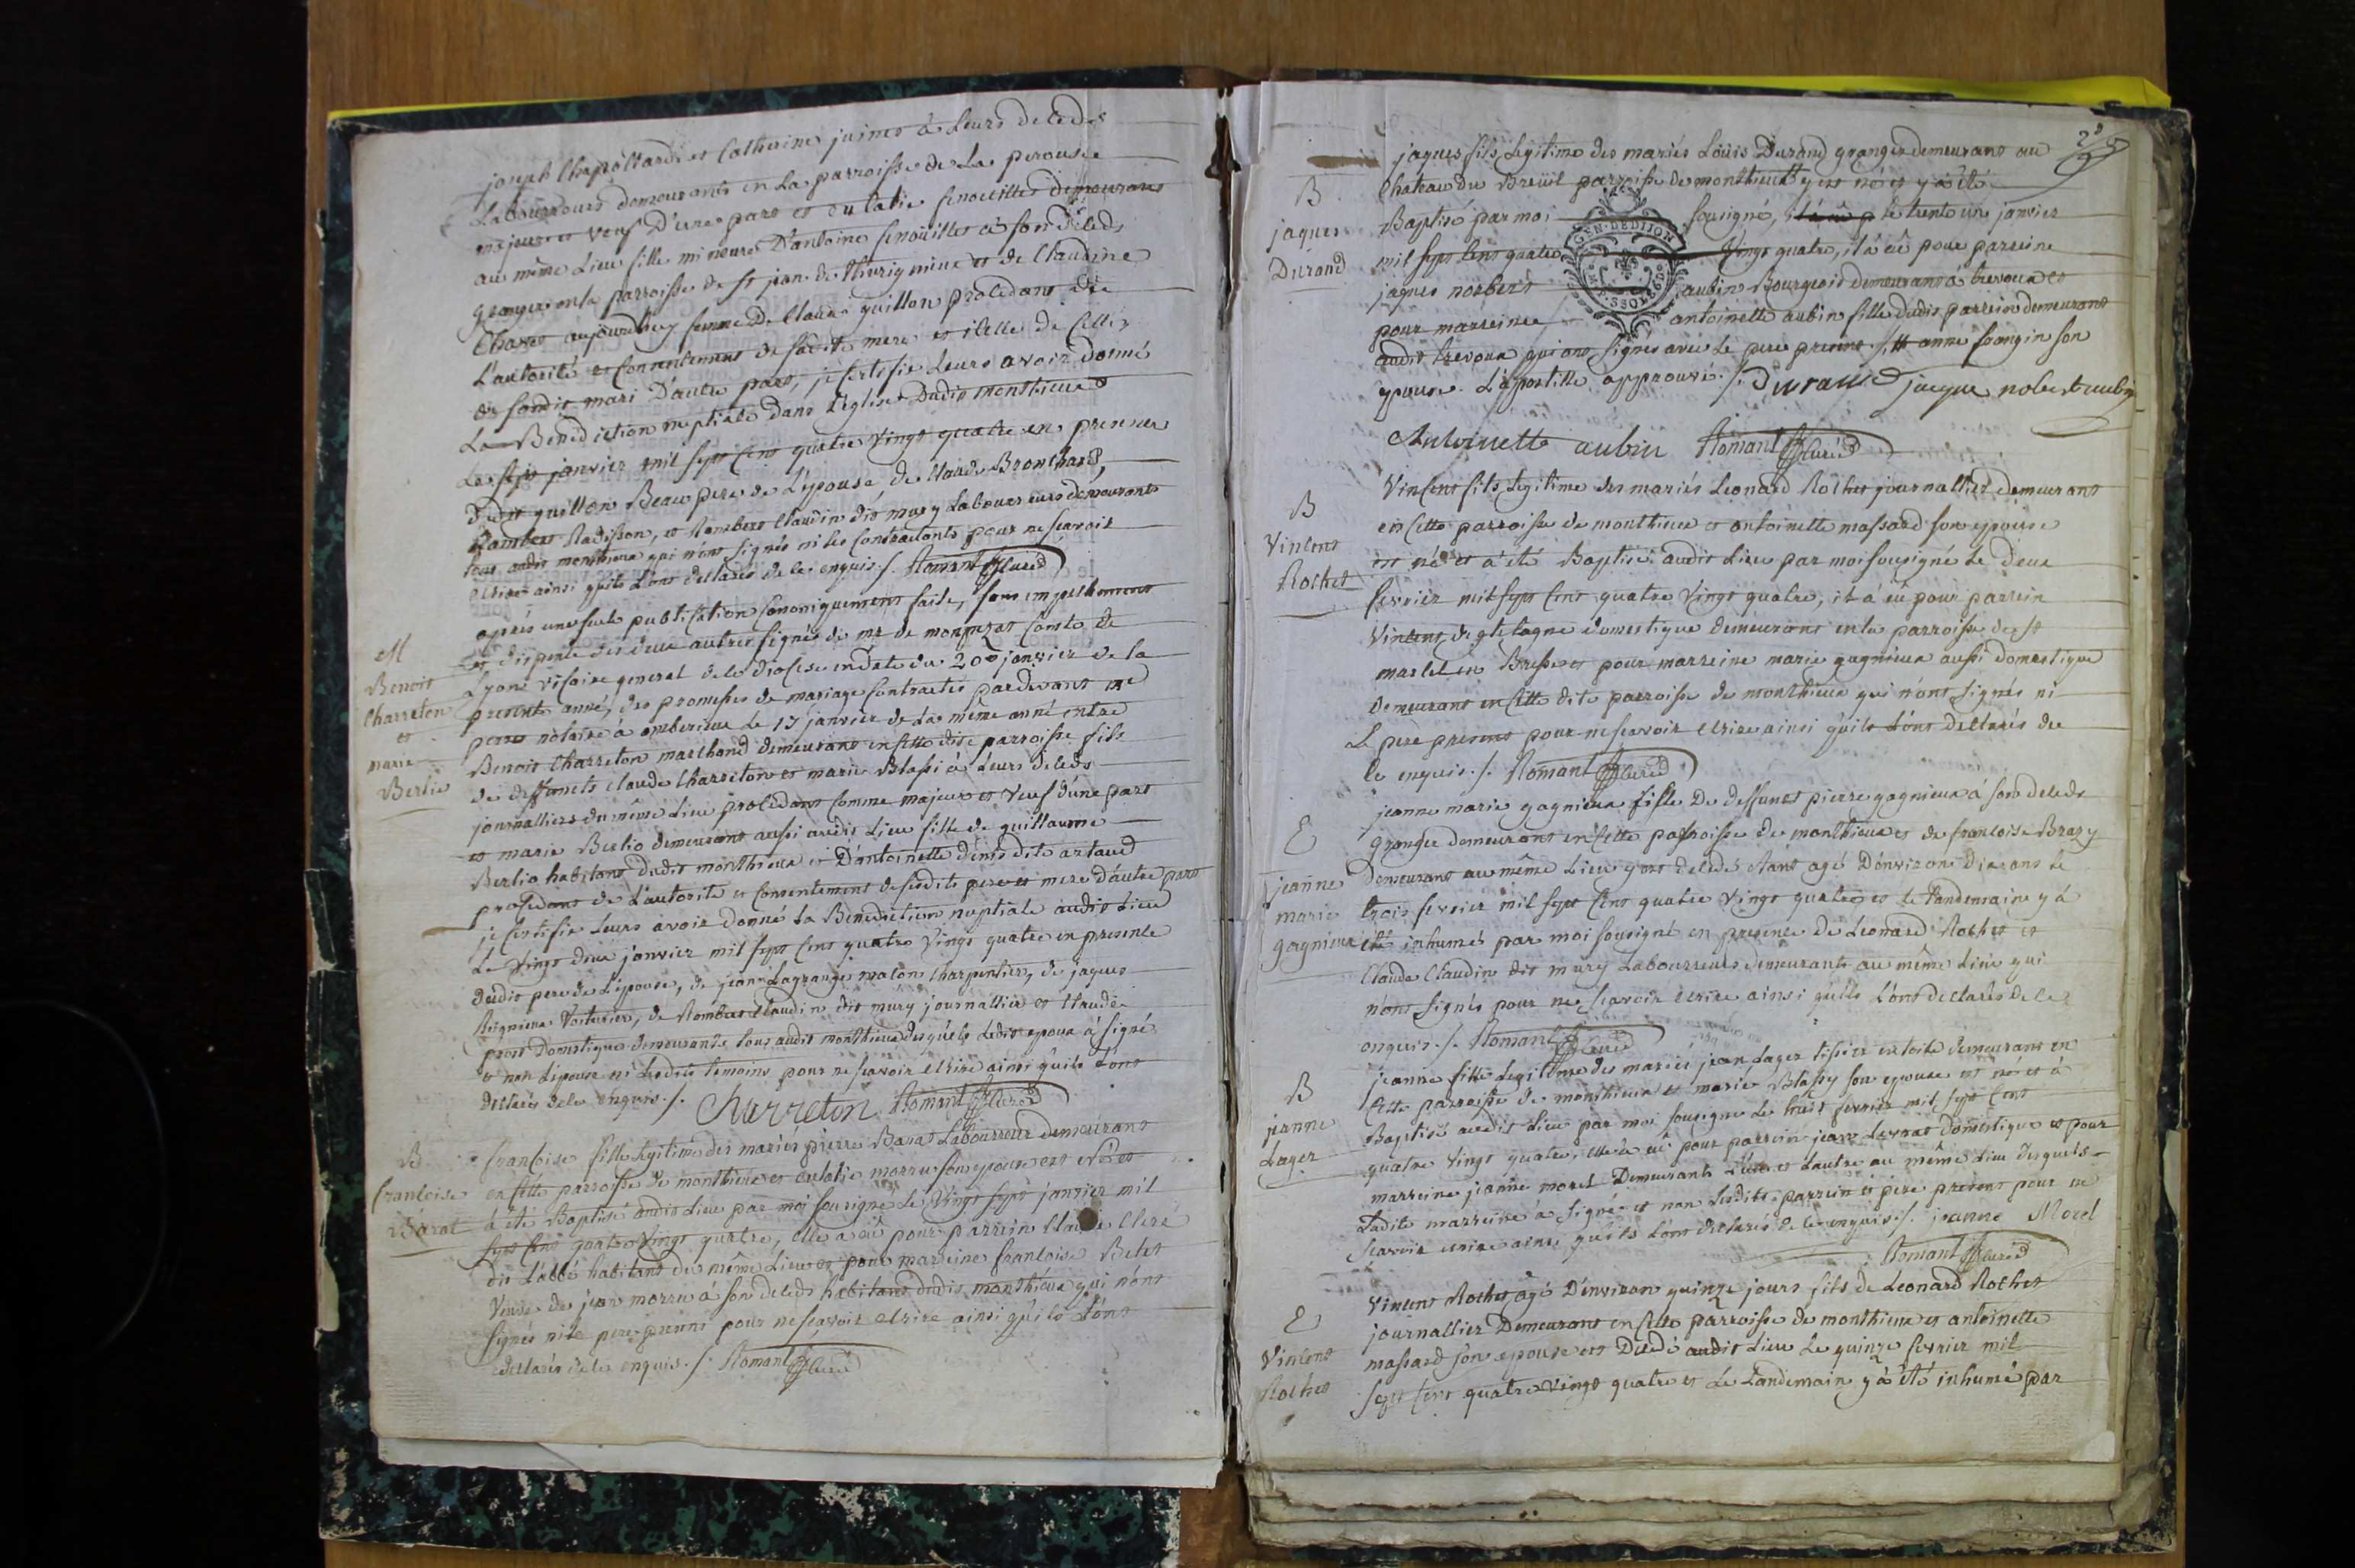 joseph Chapottard et Catherine juines à leurs decedes
Laboureurs demeurants en la parroisse de La perouse
majeur et veuf D'une part et eulalie fenouillet demeurant
au même Lieu fille mineure D'antoine fenouillet à son decds
granger en la parroisse de st jean de thurigneux et de Claudine
Charet aujourdhuy femme De Claude guillon procedant De
L'autorité et consentement de sadite mere et icelle de celui
de sondit mari D'autre part, je certifie Leurs avoir donné
La Benediction nuptiale dans L'eglise Dudit monthieux
Le sept janvier mil sept cent quatre vingt quatre en presence
dudit guillon Beau pere de L'epouse, de Claude Bronchard,
Rambert Radisson, et Rambert Claudin dit mury Laboureurs demeurants
tous audit monthieux qui n'ont signés ni les Contractants pour ne scavoir
ecrire ainsi qu'ils L'ont declarés de ce enquis ./. Romant Curé
M
Benoit
Charreton
et
marie
Berlie
après une seule publication Canoniquement faite, sans empechement
et dispense des deux autres signée de mr de monjezat Comte de
Lyon vicaire general de ce diocese en date du 20e janvier de la
presente anné, des promesses de mariage Contractés pardevant me
perret notaire à amberieux Le 17 janvier de La même anné entre
Benoit Charreton marchand demeurant en cette dite parroisse fils
de deffunts Claude Charreton et marie Blassi à Leurs decds
journalliers du même Lieu procedant Comme majeur et veuf d'une part
et marie Berlio demeurant aussi audit Lieu fille de guillaume
Berlio habitant dudit monthieux et D'antoinette denis dite artaud
procedant de L'autorité et Consentement de sesdits pere et mere d'autre part
je certifie Leurs avoir donné La Benediction nuptiale audit Lieu
Le vingt deux janvier mil sept cent quatre vingt quatre en presence
dudit pere de L'epouse, de jean Lagrange maton Charpentier, de jaques
Reignieux voiturier, de Rambert Claudin dit mury journallier et Claude
prost Domestique demeurants tous audit monthieux desquels Ledit epoux à signé
et non L'epouse ni Lesdits temoins pour ne scavoir ecrire ainsi qu'ils L'ont
declarés de ce enquis ./. Charreton Romant Curé
B
francoise
Barat
francoise fille legitime des mariés pierre Barat Laboureur demeurant
en cette parroisse de monthieux et eulalie morru son epouse est née et
à été Baptisé audit Lieu par moi sousigné Le vingt sept janvier mil
sept cent quatre vingt quatre, elle a eû pour parrein Claude Cleré
dit L'abbé habitant du même Lieu et pour marreine francoise Belet
veuve de jean morru à son decds habitant dudit monthieux qui n'ont
signés ni le pere present pour ne scavoir ecrire ainsi qu'ils L'ont
declarés de ce enquis ./. Romant Curé
B
jaques
Durand
jaques fils Legitime des mariés Loüis Durand granger demeurant au
Chateau du Breüil parroisse de monthieux y est né et y a été
Baptisé par moi sousigné, il à eû p le trente un janvier
mil sept cent quatre vingt quatre, il à eû pour parreine
GEN·DE DIJON
jaques norbert aubin Bourgeois demeurant à trevoux et
pour marreine antoinette aubin fille dudit parrein demeurant
audit trevoux qui ont signés avec Le pere present ./. et anne frangin son
epouse. L'apostille approuvé ./. Durand jacque nobert aubin
Antoinette aubin Romant Curé
B
Vincent
Rochet
Vincent fils Legitime des mariés Leonard Rochet journallier demeurant
en cette parroisse de monthieux et antoinette massard son epouse
est né et à été Baptisé audit Lieu par moi sousigné Le Deux
fevrier mil sept cent quatre vingt quatre, il à eu pour parrein
Vincent domestique demeurant en la parroisse de st
marcel en Bresse et pour marreine marie gagnieux aussi domestique
Demeurant en cette dite parroisse de monthieux qui n'ont signés ni
Le pere present pour ne scavoir ecrire ainsi qu'ils L'ont declarés de
ce enquis ./. Romant Curé
E
jeanne
marie
gagnieux
jeanne marie gagnieux fille De deffunt pierre gagnieux à son decds
granger demeurant en cette parroisse de monthieux et de francoise Brazy
demeurant au même Lieu y est decedé étant agé D'environ dix ans le
trois fevrier mil sept cent quatre vingt quatre et Le Landemain y à
été inhumés par moi sousigné en presence de Leonard Rochet et
Claude Claudin dit mury Laboureurs demeurants au même Lieu qui
n'ont signés pour ne scavoir ecrire ainsi qu'ils L'ont declarés de ce
enquis ./. Romant Curé
B
jeanne
Lager
jeanne fille Legitime des mariés jean Lager tissier en toile demeurant en
cette parroisse de monthieux et marie Blassy son epouse est né et à
Baptisé audit Lieu par moi sousigné Le huit fevrier mil sept cent
quatre vingt quatre, elle à eû pour parrein jean Levrat domestique et pour
marreine jeanne morel Demeurants L'un et L'autre au même Lieu desquels
Ladite marreine a signé et non Lesdits parrein et pere present pour ne
scavoir ecrire ainsi qu'ils L'ont declarés de ce enquis ./. jeanne Morel
Romant Curé
E
Vincent
Rochet
Vincent Rochet agé D'environ quinze jours fils de Leonard Rochet
journallier Demeurant en cette parroisse de monthieux et antoinette
massard son epouse est Decedé audit Lieu Le quinze fevrier mil
sept cent quatre vingt quatre et Le Landemain y à été inhumé par